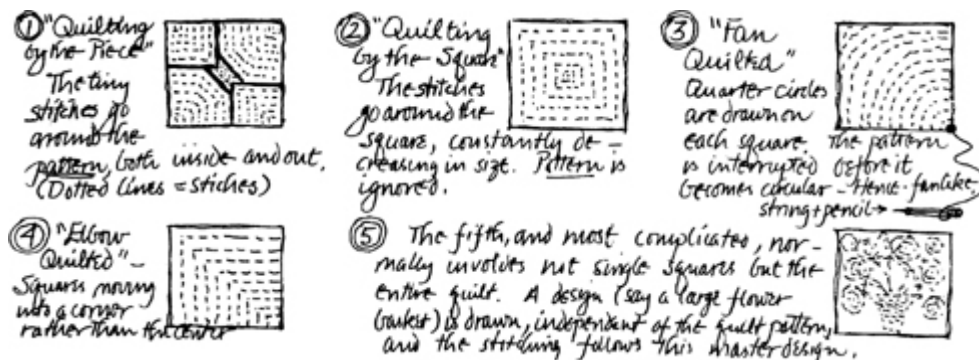 ① "Quilting
by the Piece"
The tiny
stitches go
around the
pattern, both inside and out.
(Dotted lines = stiches)
② "Quilting
by the Square"
The stitches
go around the
square, constantly de-
creasing in size. Pattern is
ignored.
③ "Fan
Quilted"
Quarter circles
are drawn on
each square. The pattern
is interrupted before it
becomes circular - Hence - fanlike.
string + pencil →
④ "Elbow
Quilted" -
Squares moving
into a corner
rather than the center
⑤ The fifth, and most complicated, nor-
mally involves not single squares but the
entire quilt. A design (say a large flower
basket) is drawn, independent of the quilt pattern,
and the stitching follows this master design.